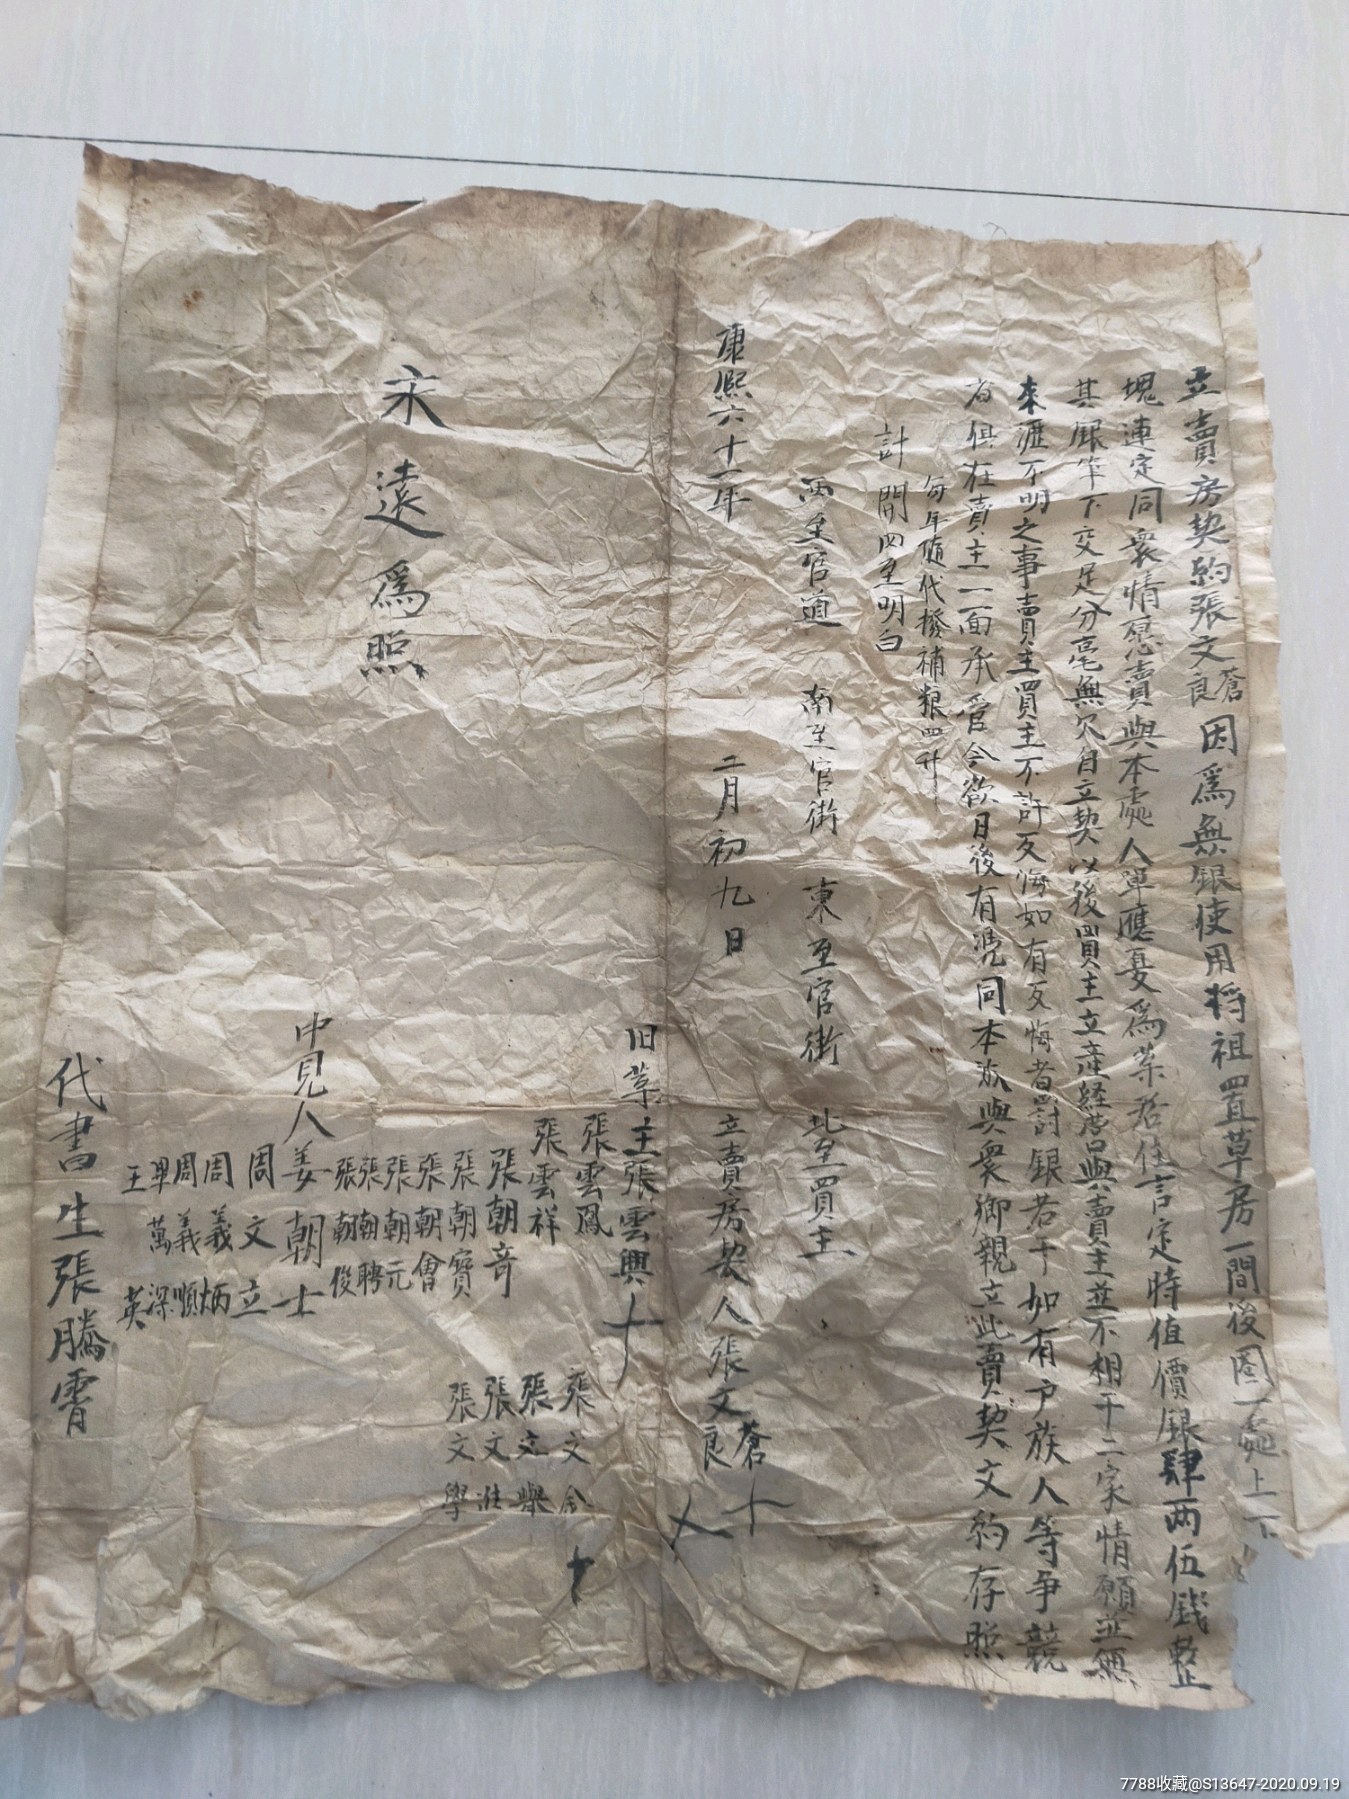 立賣房契約張文蒼良因爲無銀使用將祖置草房一間後圈一處上下
塊連定同衆情愿賣與本處人單應憂爲業居住言定時值價銀肆兩伍錢整
其銀筆下交足分毫無欠自立契以後買主立產経营與賣主並不相干二家情願並無
來涯不明之事賣主買主不許反悔如有反悔者罰銀若干如有户族人等争競
者俱在賣主一面承管今欲日後有凴同本族與衆鄉親立此賣契文約存照
每年隨代撥補粮四升
計開四至明白
西至官道 南至官街 東至官街 北至買主
康熙六十一年 二月初九日 立賣房契人張文蒼良十
旧業主張雲興十
張雲鳳 張文
張雲祥 張文舉
張朝奇 張文
張朝寳 張文學
張朝會
張朝元
張朝聘
張朝俊
中見人姜朝士
周文立
周義炳
周義順
單萬深
王英
永遠爲照
代書生張騰霄
7788收藏@S13647-2020.09.19